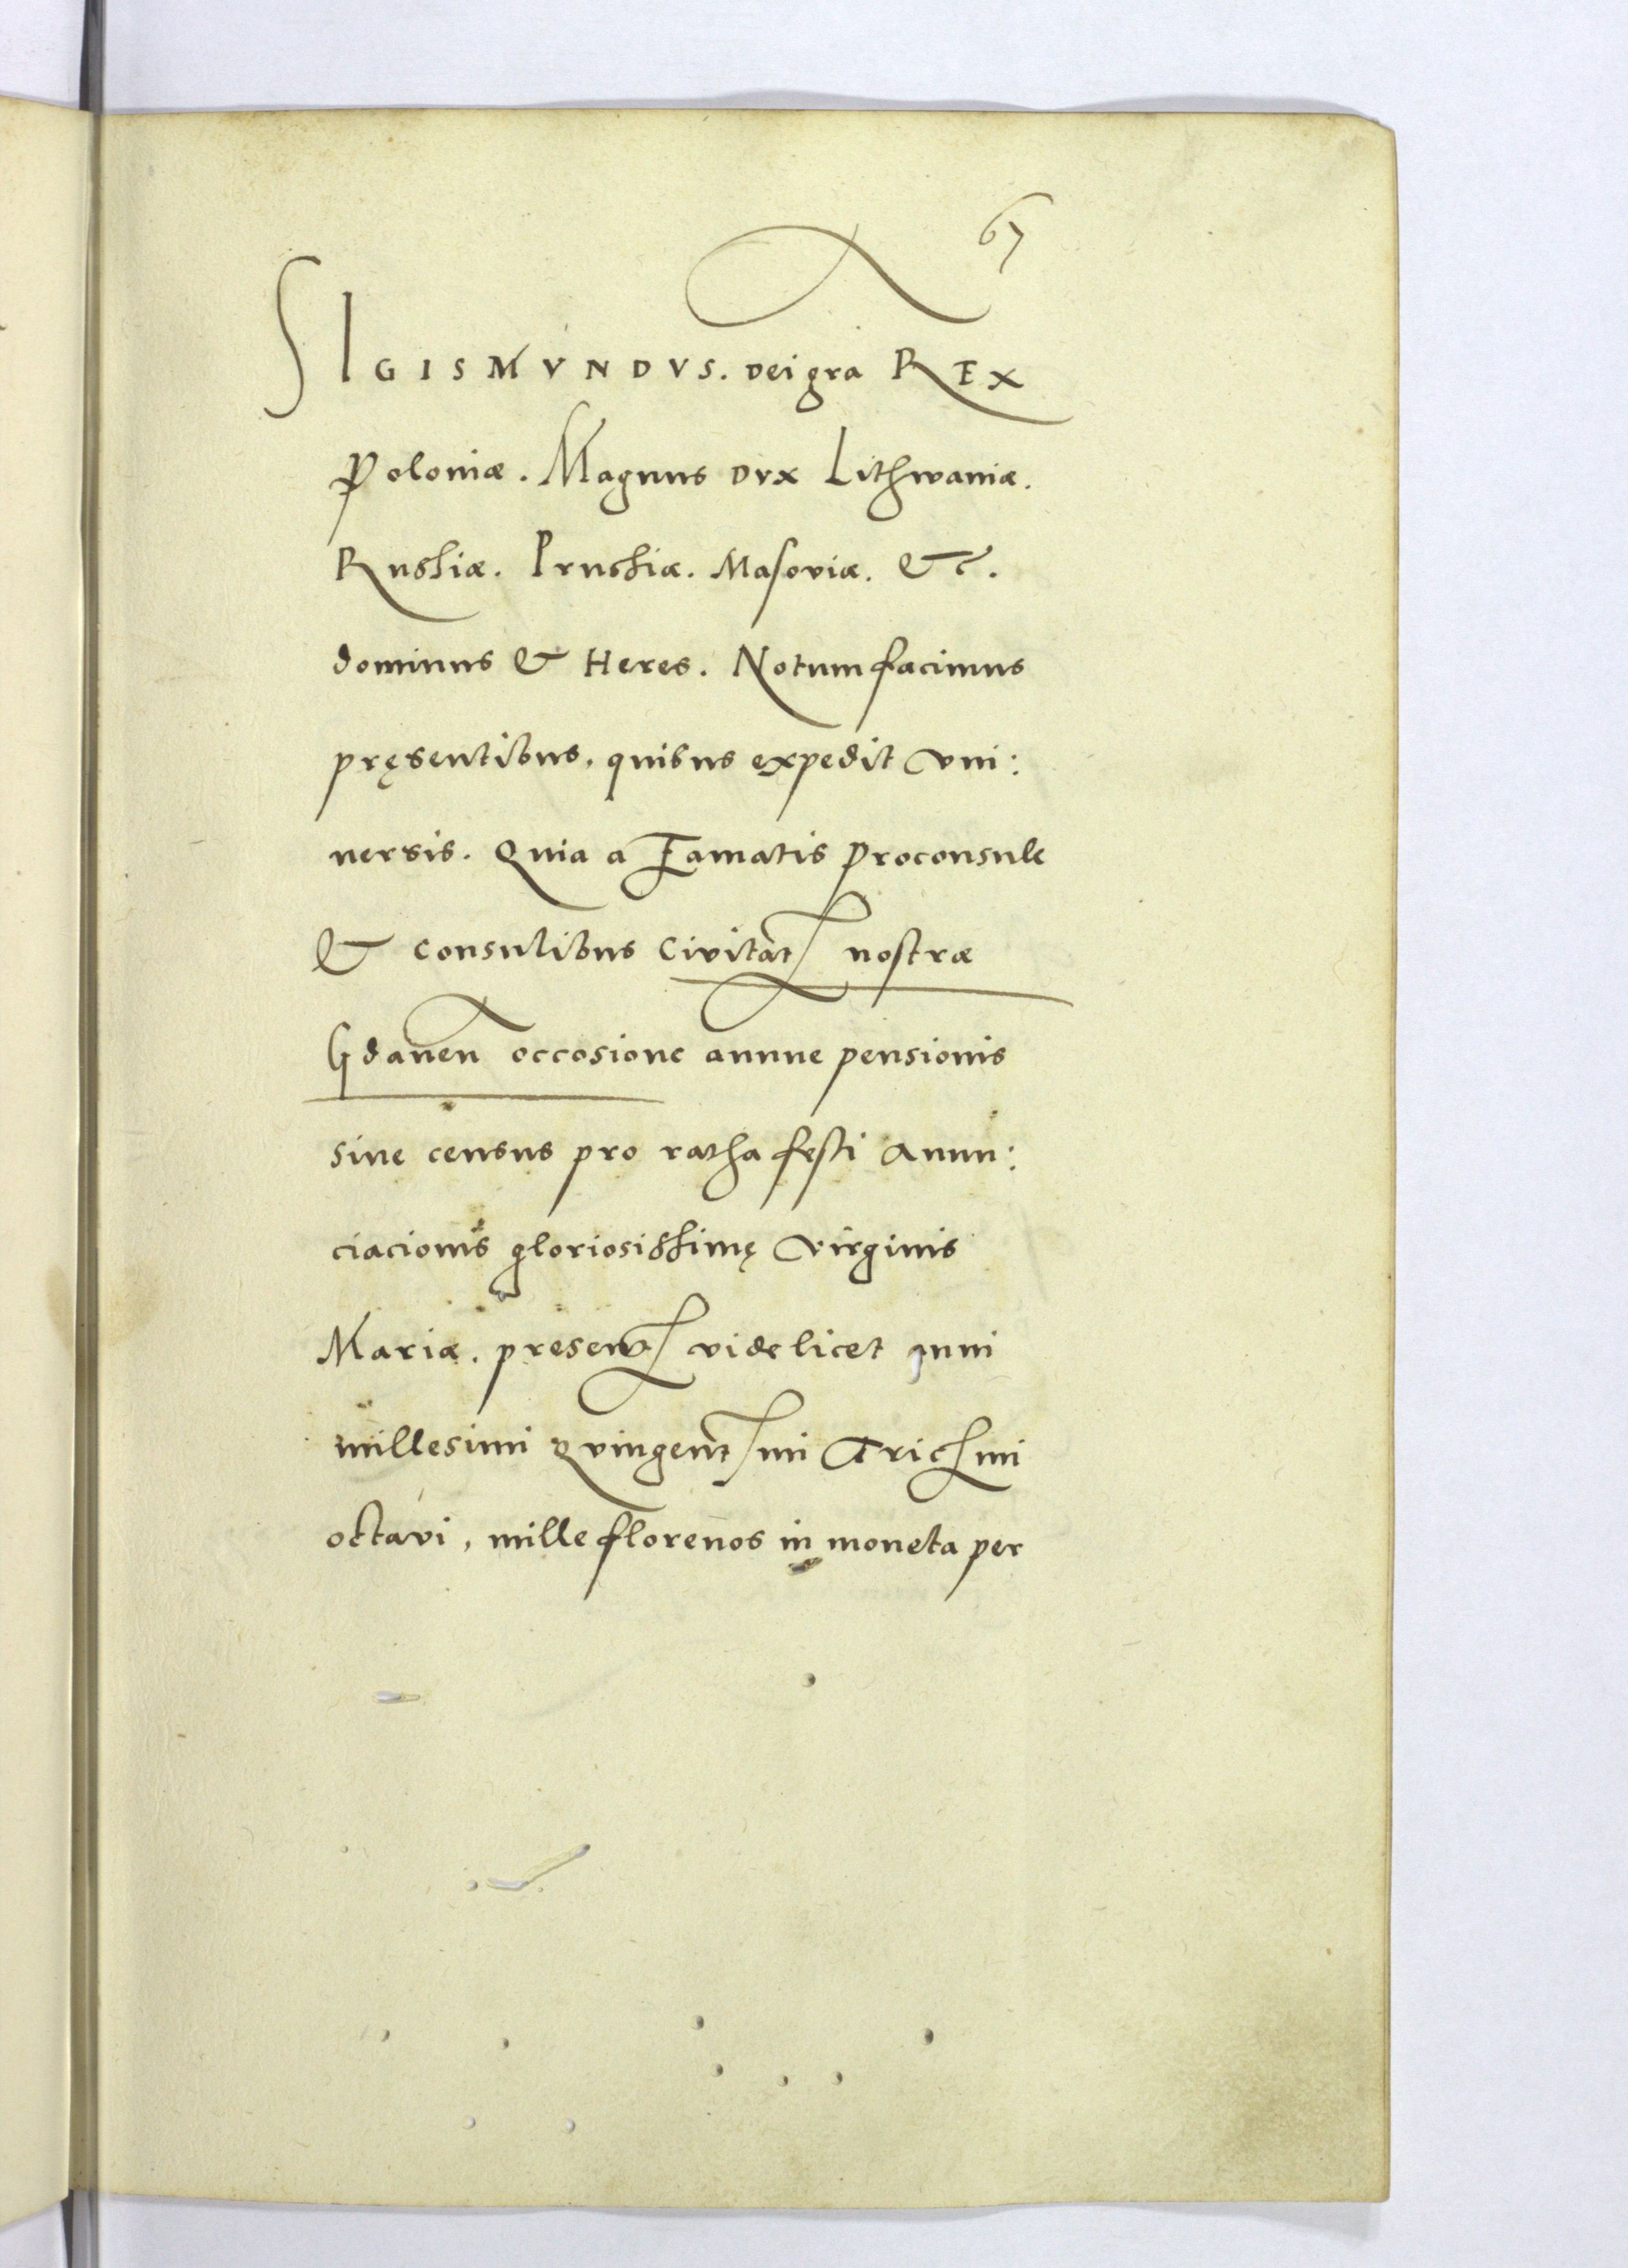 67
SIGISMVNDVS. Dei gra REX
Poloniæ. Magnus Dvx Lithwaniæ.
Russiæ. Prussiæ. Masoviæ. &c.
dominus & Heres. Notum facimus
pręsentibus, quibus expedit vni:
uersis. Quia a Famatis Proconsule
& Consulibus Civitat nostræ
Gdanen occosione annue pensionis
siue census pro ratha festi Anun:
ciacionis gloriosissimę virginis
Mariæ. present videlicet anni
millesimi Qvingent mi Tric mi
octavi, mille florenos in moneta per